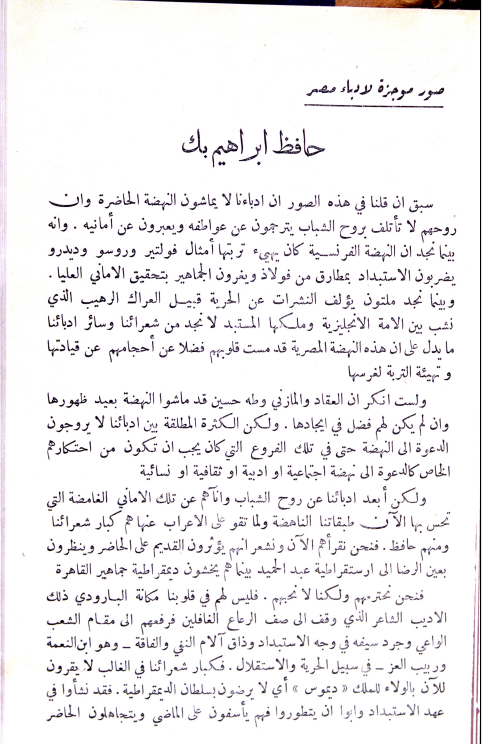 صور موجزة لادباء مصر
حافظ ابراهيم بك
سبق ان قلنا في هذه الصور ان ادباءنا لا يماشون النهضة الحاضرة وان
روحهم لا تأتلف بروح الشباب يترجمون عن عواطفه ويعبرون عن أمانيه . وانه
بينما نجد ان النهضة الفرنسية كان يهيء تربتها أمثال فولتير وروسو وديدرو
يضربون الاستبداد بمطارق من فولاذ ويغرون الجماهير بتحقيق الاماني العليا .
وبينما نجد ملتون يؤلف النشرات عن الحرية قبيل العراك الرهيب الذي
نشب بين الامة الانجليزية وملكها المستبد لا نجد من شعرائنا وسائر ادبائنا
ما يدل على ان هذه النهضة المصرية قد مست قلوبهم فضلا عن أحجامهم عن قيادتها
و تهيئة التربة لغرسها
ولست انكر ان العقاد والمازني وطه حسين قد ماشوا النهضة بعيد ظهورها
وان لم يكن لهم فضل في ايجادها . ولكن الكثرة المطلقة بين ادبائنا لا يروجون
الدعوة الى النهضة حتى في تلك الفروع التي كان يجب ان تكون من احتكارهم
الخاص كالدعوة الى نهضة اجتماعية او ادبية او ثقافية او نسائية
ولكن أبعد ادبائنا عن روح الشباب وانآهم عن تلك الاماني الغامضة التي
تحس بها الآن طبقاتنا الناهضة ولما تقو على الاعراب عنها هم كبار شعرائنا
ومنهم حافظ . فنحن نقرأهم الآن ونشعر انهم يؤثرون القديم على الحاضر وينظرون
بعين الرضا الى ارستقراطية عبد الحميد بينما هم يخشون ديمقراطية جماهير القاهرة
فنحن نحترمهم ولكنا لا نحبهم . فليس لهم في قلوبنا مكانة البارودي ذلك
الاديب الشاعر الذي وقف الى صف الرعاع الغافلين فرفعهم الى مقام الشعب
الواعي وجرد سيفه في وجه الاستبداد وذاق آلام النفي والفاقة ــ وهو ابن النعمة
وربيب العز ــ في سبيل الحرية والاستقلال . فكبار شعرائنا في الغالب لا يقرون
للآن بالولاء للملك « ديموس » أي لا يرضون بسلطان الديمقراطية . فقد نشأوا في
عهد الاستبداد وابوا ان يتطوروا فهم يأسفون على الماضي ويتجاهلون الحاضر